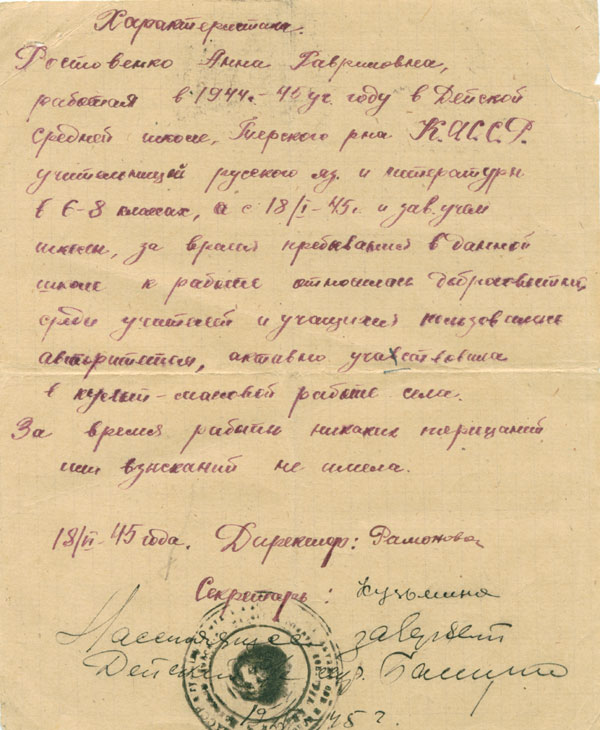 Характеристика.
Ростовенко Анна Гавриловна,
работая в 1944г.-45 уч. году в Дейской
средней школе, Терского р-на К.АССР.
учительницей русского яз. и литературы
в 6-8 классах, а с 18/I-45г. и зав. учем
школы, за время пребывания в данной
школе к работе относилась добросовестно,
среди учителей и учащихся пользовалась
авторитетом, активно участвовала
в культ-массовой работе села.
За время работы никаких порицаний
или взысканий не имела.
18/II-45 года. Директор: Рамонова
Секретарь: Кузьмина
Настоящее заверяет
45 г.